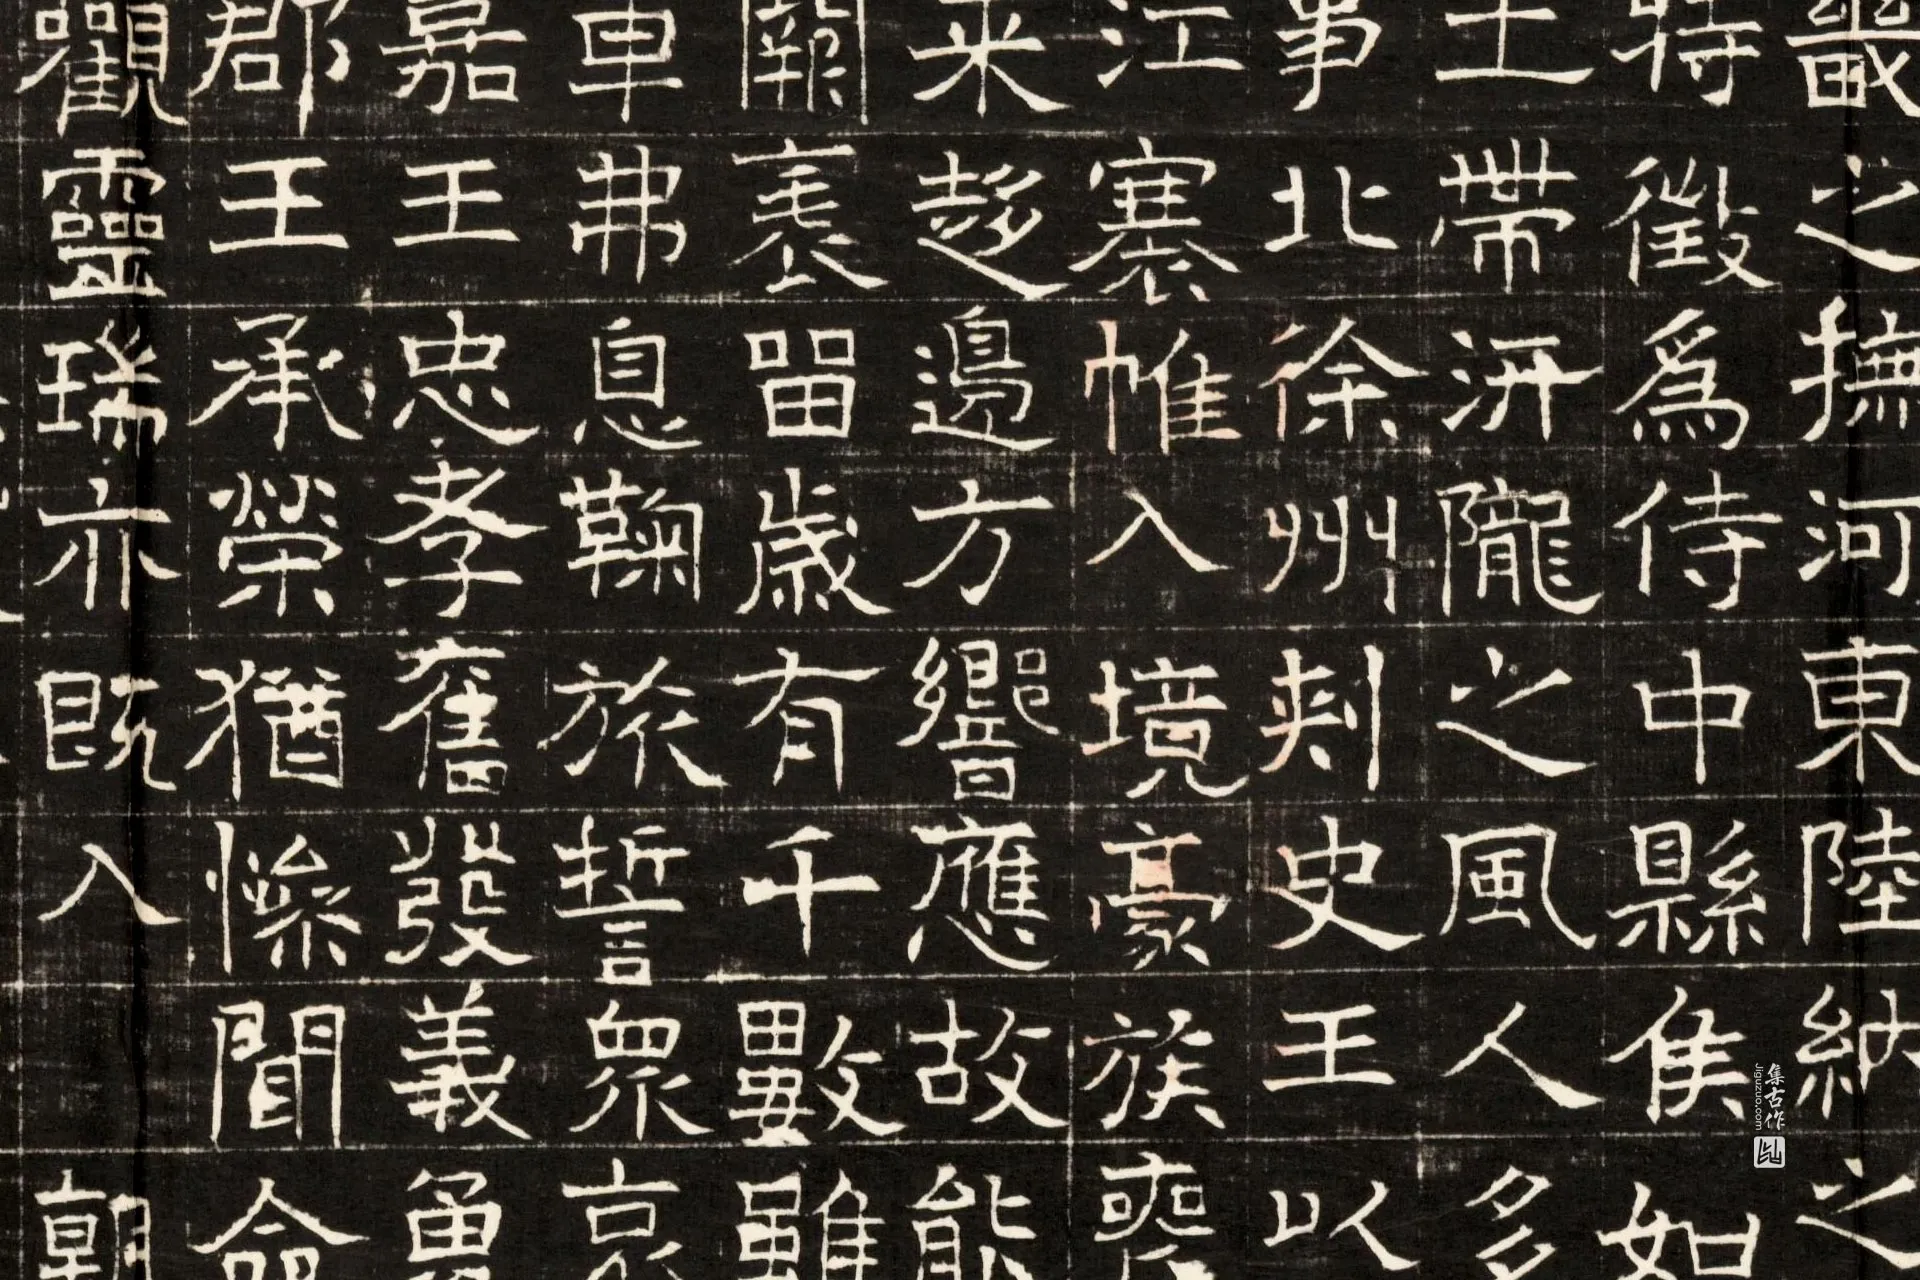 畿之撫河東陸納之
特徵為侍中縣侯如
土帶汧隴之風人多
事北徐州刺史王以
江褰帷入境豪族
來趍邊方響應故能
闕裹留歲有千數雖
車弗息鞠旅誓眾哀
嘉王忠孝舊發義勇
郡王承榮猶慘聞命
觀靈瑞亦既入朝
集古作
Jiguzuo.com